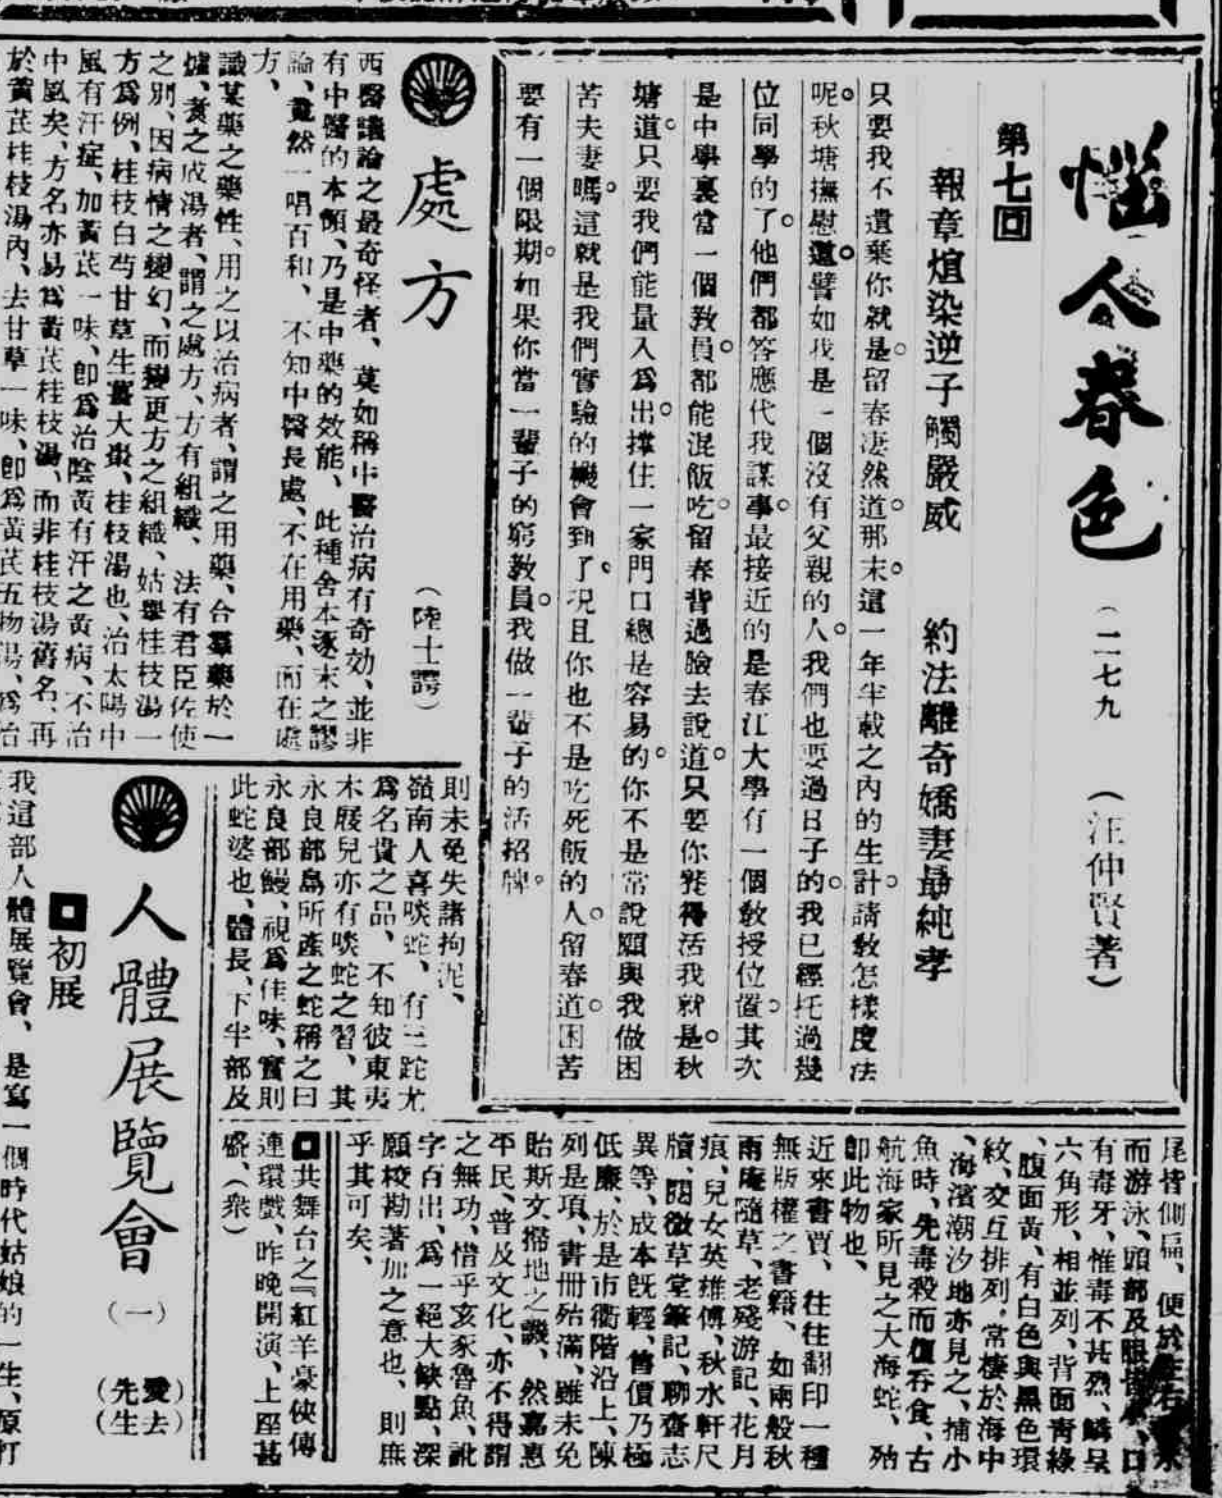 惱人春色
（二七九）
（汪仲賢著）
第七回
報章煊染逆子觸嚴威　約法離奇嬌妻最純孝
只要我不遺棄你就是。留春凄然道。那末。這一年半載之內的生計。請敎怎樣度法
呢。秋塘撫慰道。譬如我是一個沒有父親的人。我們也要過日子的。我已經托過幾
位同學的了。他們都答應代我謀事。最接近的是春江大學有一個敎授位置。其次
是中學裏當一個敎員。都能混飯吃。留春背過臉去說道。只要你養得活我就是。秋
塘道。只要我們能量入爲出。撑住一家門口總是容易的。你不是常說願與我做困
苦夫妻嗎。這就是我們實驗的機會到了。况且你也不是吃死飯的人。留春道。困苦
要有一個限期。如果你當一輩子的窮敎員。我做一輩子的活招牌。
處方
（陸士諤）
西醫議論之最奇怪者、莫如稱中醫治病有奇効、並非
有中醫的本領、乃是中藥的效能、此種舍本逐末之謬
論、竟然一唱百和、不知中醫長處、不在用藥、而在處
方、
識某藥之藥性、用之以治病者、謂之用藥、合羣藥於一
爐、煑之成湯者、謂之處方、方有組織、法有君臣佐使
之別、因病情之變幻、而變更方之組織、姑舉桂枝湯一
方爲例、桂枝白芍甘草生薑大棗、桂枝湯也、治太陽中
風有汗症、加黃芪一味、卽爲治陰黃有汗之黃病、不治
中風矣、方名亦易爲黃芪桂枝湯、而非桂枝湯舊名、再
於黃芪桂枝湯內、去甘草一味、卽爲黃芪五物湯、爲治
則未免失諸拘泥、
嶺南人喜啖蛇、有三蛇尤
爲名貴之品、不知彼東夷
木屐兒亦有啖蛇之習、其
永良部島所產之蛇稱之曰
永良部鰻、視爲佳味、實則
此蛇婆也、體長、下半部及
尾皆側扁、便於左右
而游泳、頭部及眼皆小、口
有毒牙、惟毒不甚烈、鱗呈
六角形、相並列、背面靑綠
、腹面黃、有白色與黑色環
紋、交互排列、常棲於海中
、海濱潮汐地亦見之、捕小
魚時、先毒殺而復吞食、古
航海家所見之大海蛇、殆
卽此物也、
近來書賈、往往翻印一種
無版權之書籍、如兩般秋
雨庵隨草、老殘游記、花月
痕、兒女英雄傳、秋水軒尺
牘、閱微草堂筆記、聊齋志
異等、成本旣輕、售價乃極
低廉、於是市衢階沿上、陳
列是項、書冊殆滿、雖未免
貽斯文掃地之譏、然嘉惠
平民、普及文化、亦不得謂
之無功、惜乎亥豕魯魚、訛
字百出、爲一絕大缺點、深
願校勘著加之意也、則庶
乎其可矣、
共舞台之『紅羊豪俠傳
連環戲、昨晚開演、上座甚
盛、（衆）
人體展覽會
（一）
（愛去先生）
初展
我這部人體展覽會、是寫一個時代姑娘的一生、原打